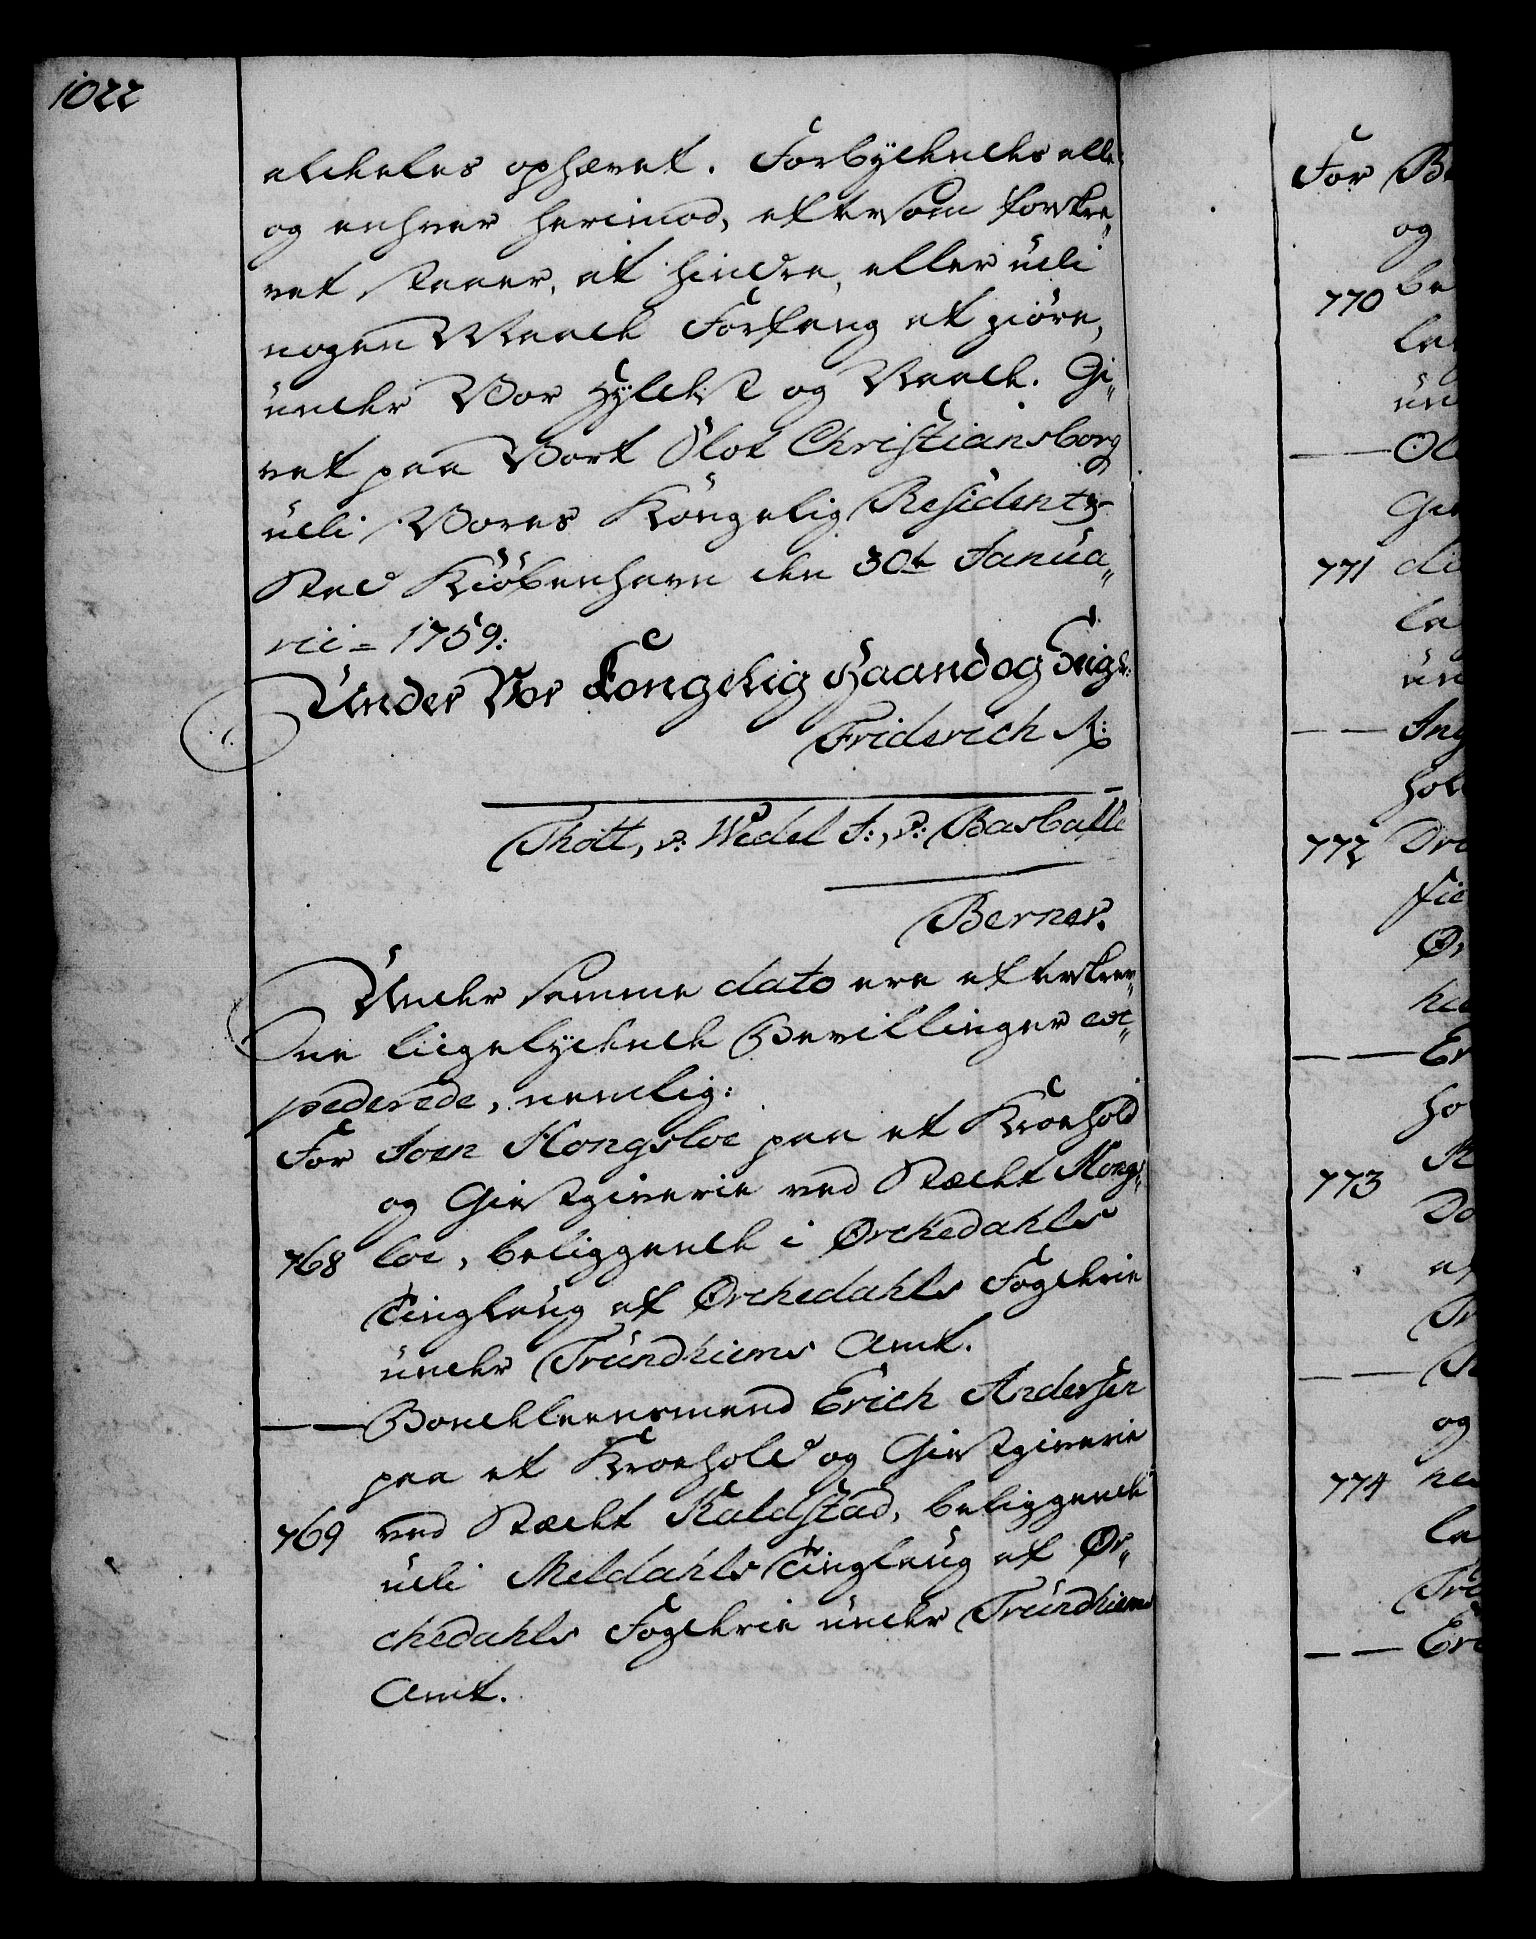 1022
aldeles ophævet. Forbydendes alle
og enhver herimod, eftersom forskre„
vet staaer, at hindre, eller udi
nogen Maade Forfang at giöre,
under Vor Hyldest og Naade. Gi„
vet paa Vort Slot Christiansborg
udi Vores Kongelig Residentz-
Stad Kiöbenhavn den 30te Janua„
rii = 1759.
Under Vor Kongelig Haand og Seigl.
Friderich R.
Thott, v: Wedel F:, v: Basballe
Berner.
Under samme dato ere efterskrev„
ne liigelydende Bevillinger ex„
pederede, nemlig:
For Joen Kongsloe paa et Kroehold
og Giestgiverie ved Stædet Kongs„
768 loe, beliggende i Ørchedahls
Tinglaug af Ørchedahls Fogderie
under Trundhiems Amt.
—— Bondeleensmand Erich Andersen
paa et Kroehold og Giestgiverie
769 ved Stædet Kaldstad, beliggende
udi Meldahls Tinglaug af Ør„
chedahls Fogderie under Trundhiems
Amt.
For
og
770
771
—— 
772
—— 
773
—— 
og
774
——